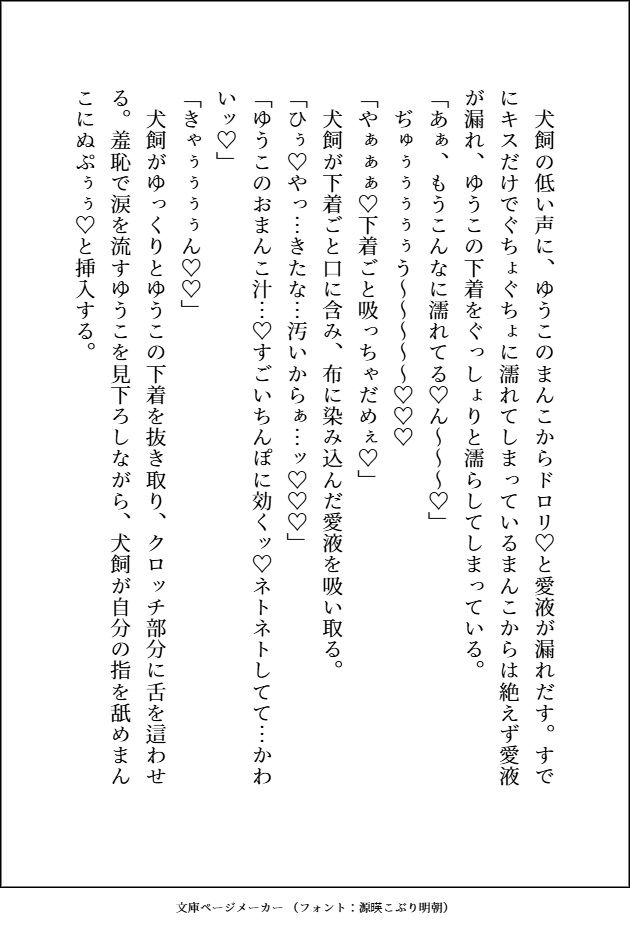 犬飼の低い声に、ゆうこのまんこからドロリ♡と愛液が漏れだす。すで
にキスだけでぐちょぐちょに濡れてしまっているまんこからは絶えず愛液
が漏れ、ゆうこの下着をぐっしょりと濡らしてしまっている。
「あぁ、もうこんなに濡れてる♡ん〜〜〜♡」
ぢゅぅぅぅぅぅう〜〜〜〜〜♡♡♡
「やぁぁぁ♡下着ごと吸っちゃだめぇ♡」
犬飼が下着ごと口に含み、布に染み込んだ愛液を吸い取る。
「ひぅ♡やっ…きたな…汚いからぁ…ッ♡♡♡」
「ゆうこのおまんこ汁…♡すごいちんぽに効くッ♡ネトネトしてて…かわ
いッ♡」
「きゃぅぅぅぅん♡♡」
犬飼がゆっくりとゆうこの下着を抜き取り、クロッチ部分に舌を這わせ
る。羞恥で涙を流すゆうこを見下ろしながら、犬飼が自分の指を舐めまん
こにぬぷぅぅ♡と挿入する。
文庫ページメーカー （フォント：源暎こぶり明朝）